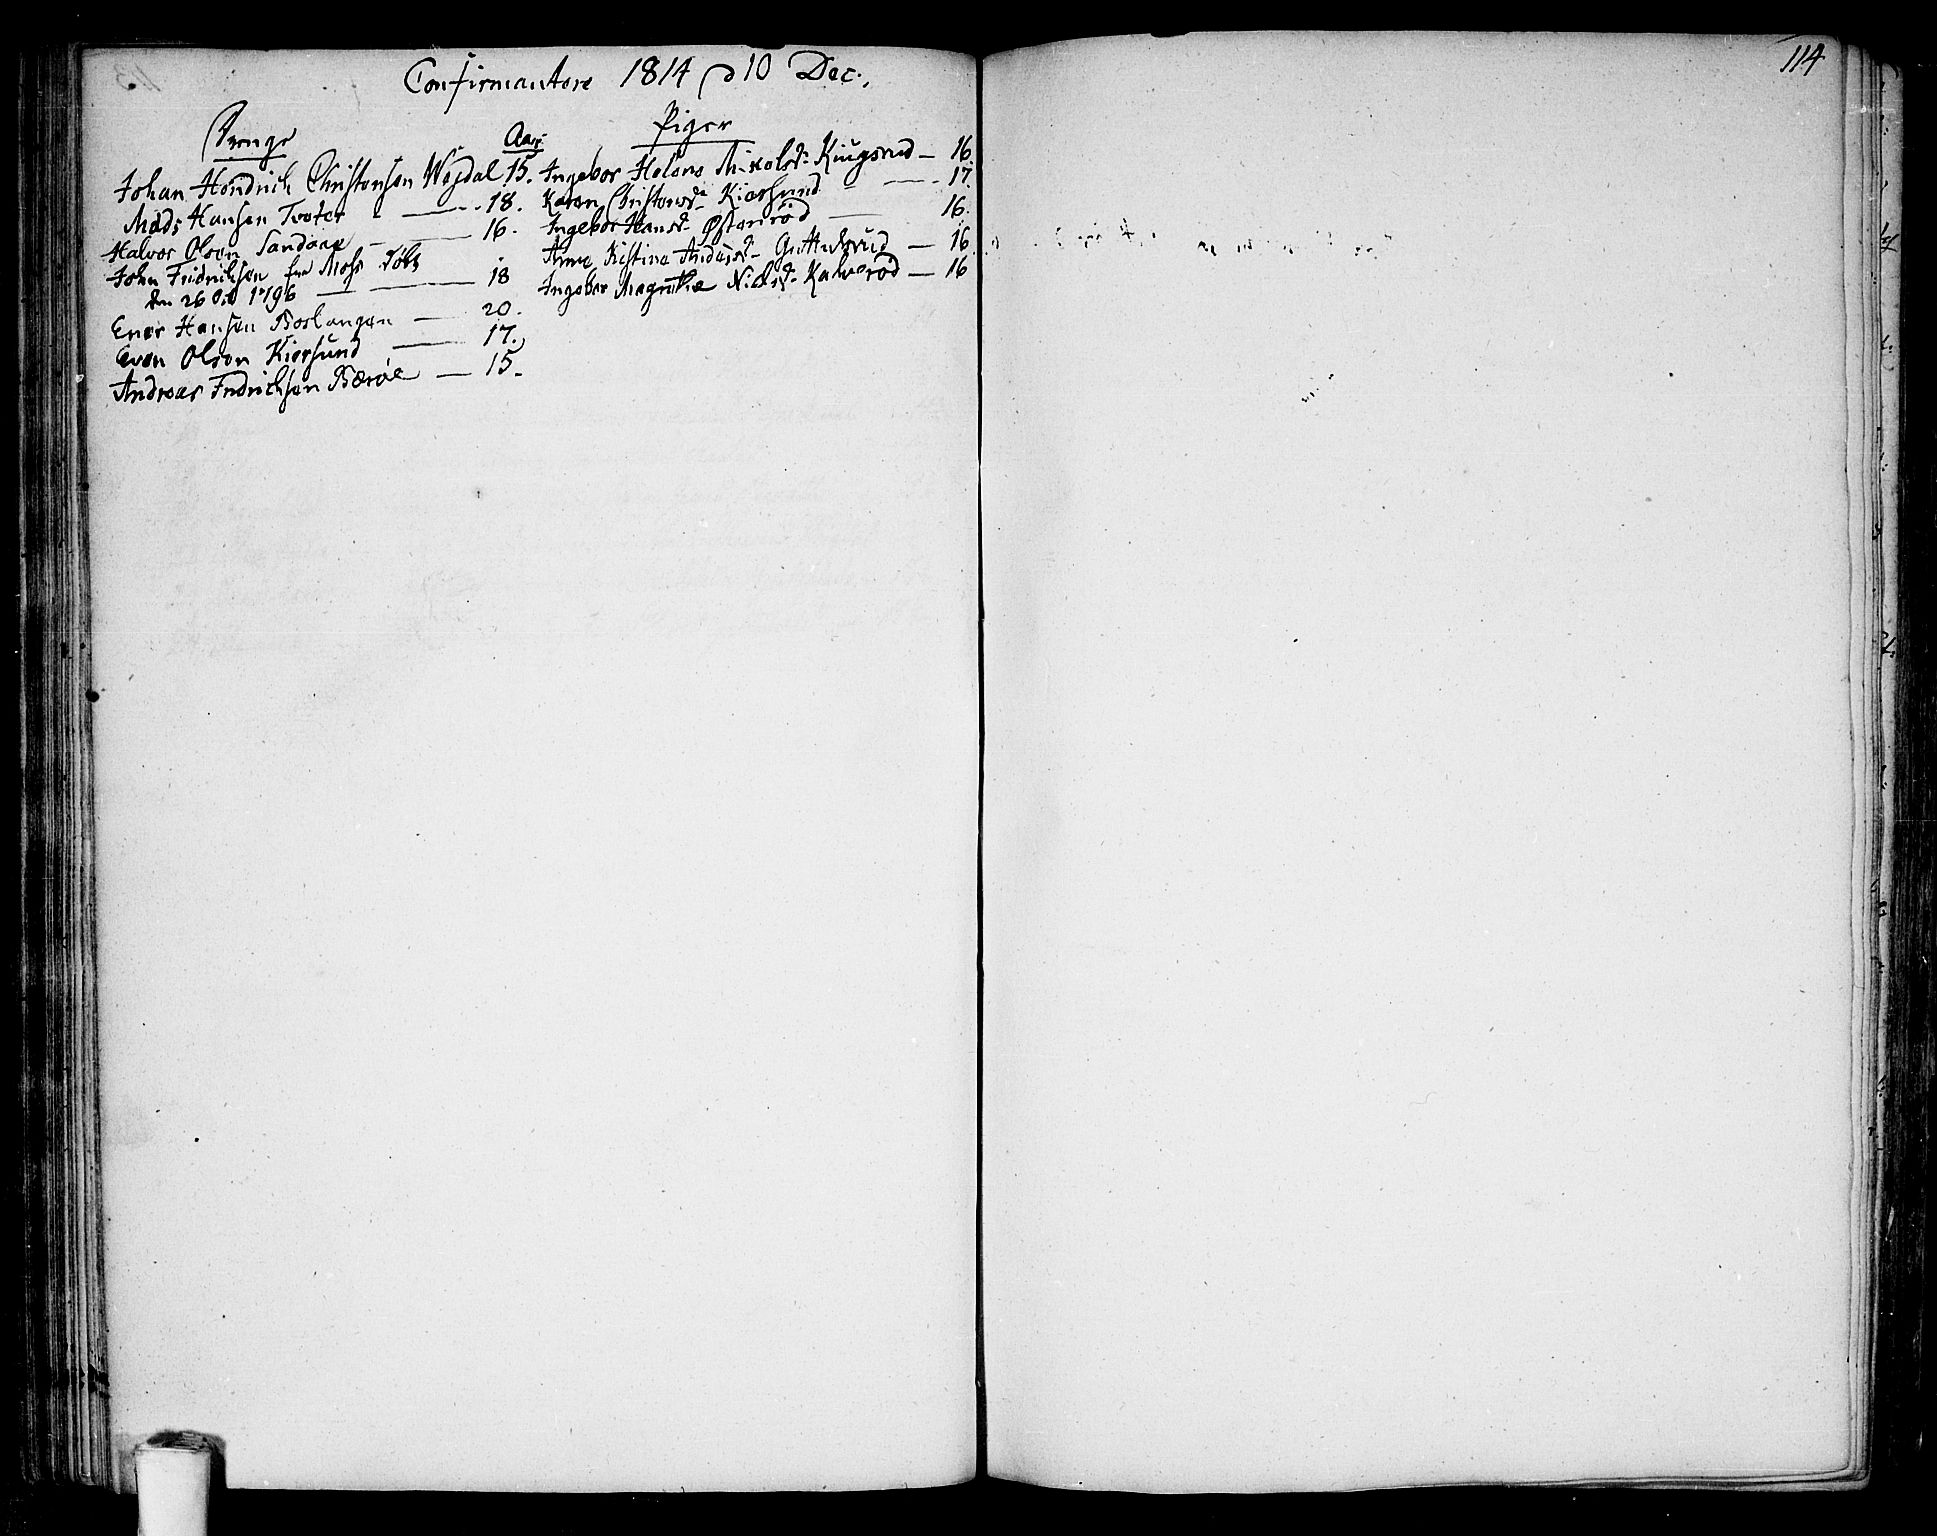 114
Confirmantere 1814 d 10 Dec:
Drenge
Aar
Johan Hendrich Christensen Wejdal 15.
Mads Hansen Tveter - 18.
Halvor Olsen Sandaae - 16.
Johan Fridrichsen fra Moss Døbt
den 26 Oct 1796 - 18
Ener Hansen Boslangen - 20.
Even Olsen Kiersund - 17.
Andreas Fridrichsen Bærøe - 15.
Piger
Ingebor Helene Nikolsd: Kiugsrud - 16.
Karen Christensd: Kiersund - 17.
Ingebor Hansd: Østenrød - 16.
Anne Kistine Andersd: - 16
Ingebor Magrethe Nielsd: Kalverød - 16